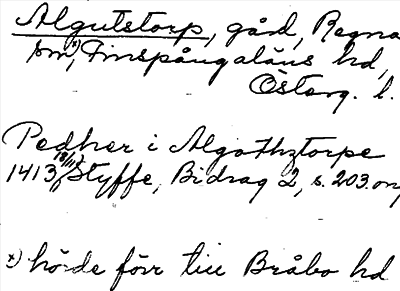 Algutstorp, gård, Regna
sn x), Finspångaläns hd,
Österg. l.
Pedher i Algothztorpe
1413 18/11 Styffe, Bidrag 2, s. 203. or
x) hörde förr till Bråbo hd